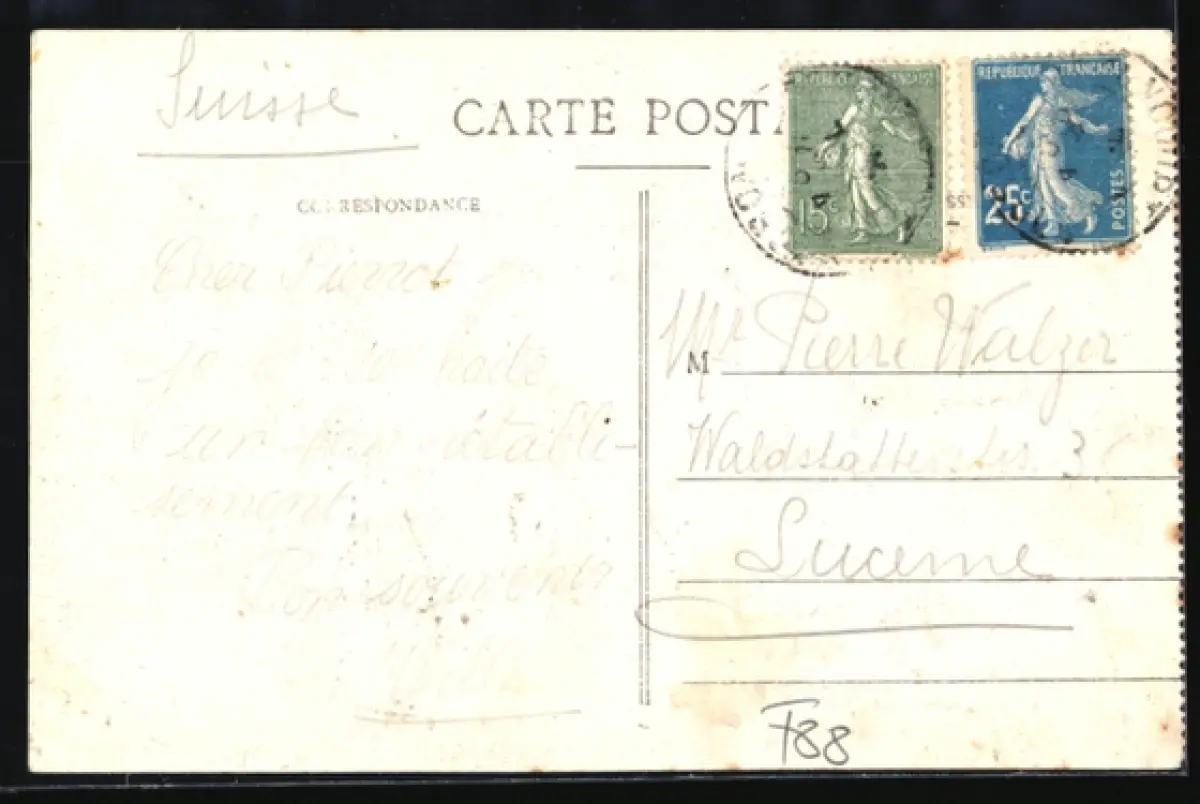 Suisse
CARTE POSTA
REPUBLIQUE FRANÇAISE
15c
REPUBLIQUE FRANÇAISE
25c
POSTES
CORRESPONDANCE
Cher Pierrot
je te souhaite
un bon établi-
sement.
Bon souvenir
M
Mr Pierre Walzer
Waldstätterstr. 3
Lucerne
F88